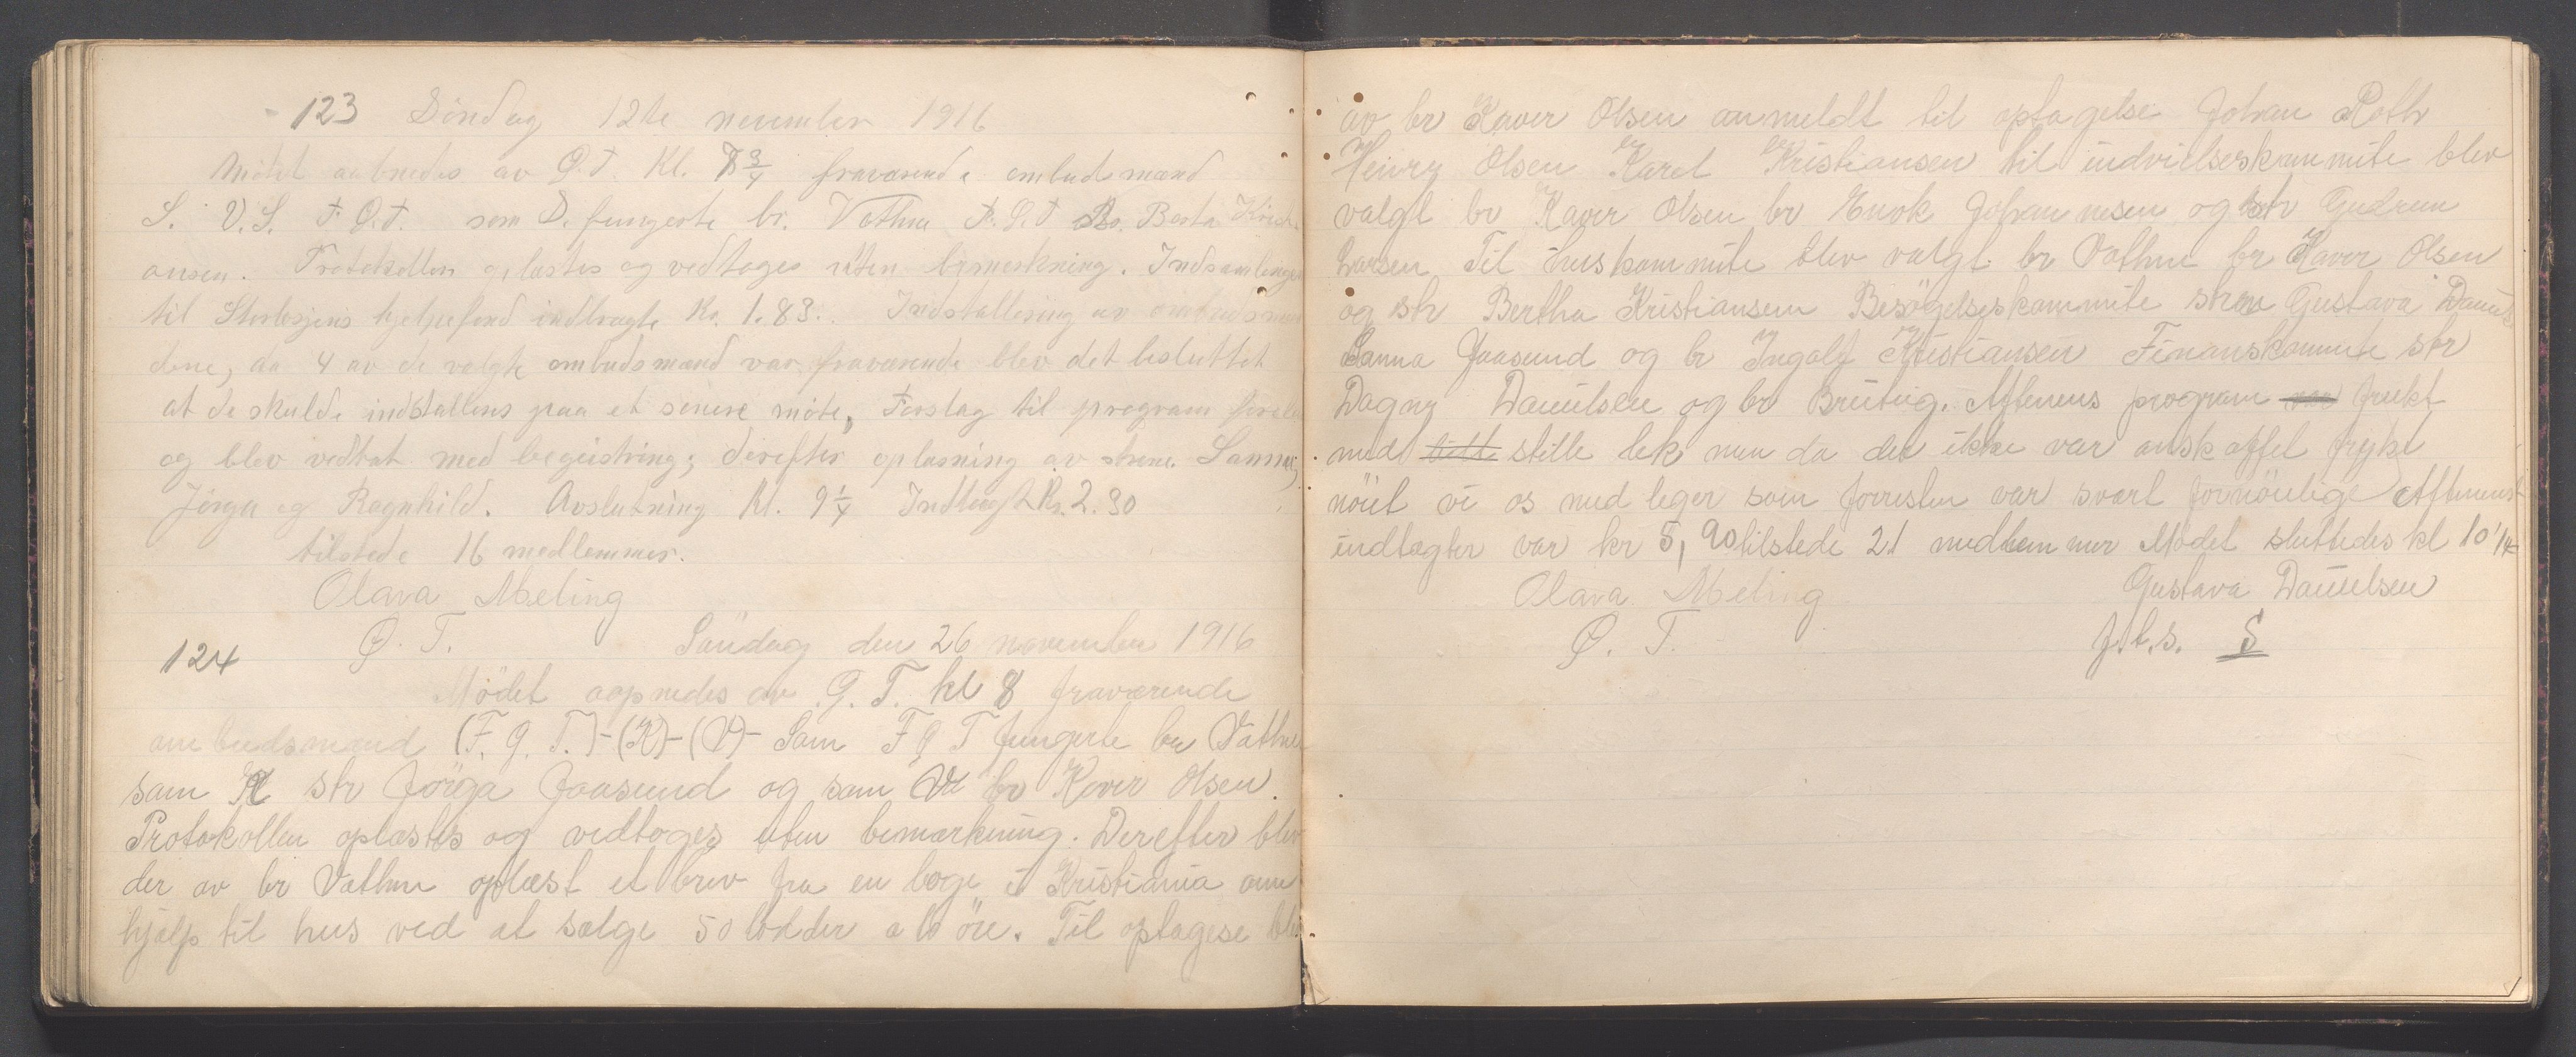 123 Söndag 12te november 1916
Mötet aabnedes av G.T. Kl. 8 3/4 fraværende ombudsmænd
S. V.S. F.G.T. som S. fungerte br. Vathne F.G.T Berta Kristi-
ansen. Protokollen oplæstes og vedtoges uten bemerkning. Indsamlingen
til Storlogens hjelpefond indbragte Kr. 1.83. Installering av ombudsmæn
dene, da 4 av de valgte ombudsmænd var fraværende blev det besluttet
at de skulde indstalleres paa et senere möte, Forslag til program
og blev vedtat med begeistring; derefter oplæsning av strene. Sanna,
Jörga og Ragnhild. Avslutning Kl. 9 1/4 Indtægt Kr. 2.30
tilstede 16 medlemmer.
Olava Meling
G. T.
124 Söndag den 26 november 1916
Mödet aapnedes av G. T. kl 8 fraværende
ombudsmænd (F. G. T.)-(K)-(V)- Som F G T fungerte br Vathne
som K str Jörga Jaasund og som V br Kaver Olsen.
Protokollen oplæstes og vedtoges uten bemærkning. Derefter blev
der av br Vathne oplæst et brev fra en loge i Kristiania om
hjælp til hus ved at sælge 50 lodder a 10 öre. Til optagese blev
av br Kaver Olsen anmeldt til optagelse Johan Roth
Henry Olsen Karel Kristiansen til indvielseskommite blev
valgt br Kaver Olsen br Enok Johannesen og str Gudrun
Larsen Til huskommite blev valgt br Vathne br Kaver Olsen
og str Bertha Kristiansen Besögelseskommite strene Gustava Daniels
Sanna Jaasund og br Ingolf Kristiansen Finanskomite str
Dagny Danielsen og br Bruting. Aftenens program frukt
med stille lek men da det ikke var anskaffet frykt
nöiet vi os med leger som forresten var svært fornöielige Aftenens
indtægter var kr 5,90 tilstede 21 medlemmer Mödet sluttedes kl 10 1/4
Olava Meling Gustava Danielsen
G. T. f.t.s. S